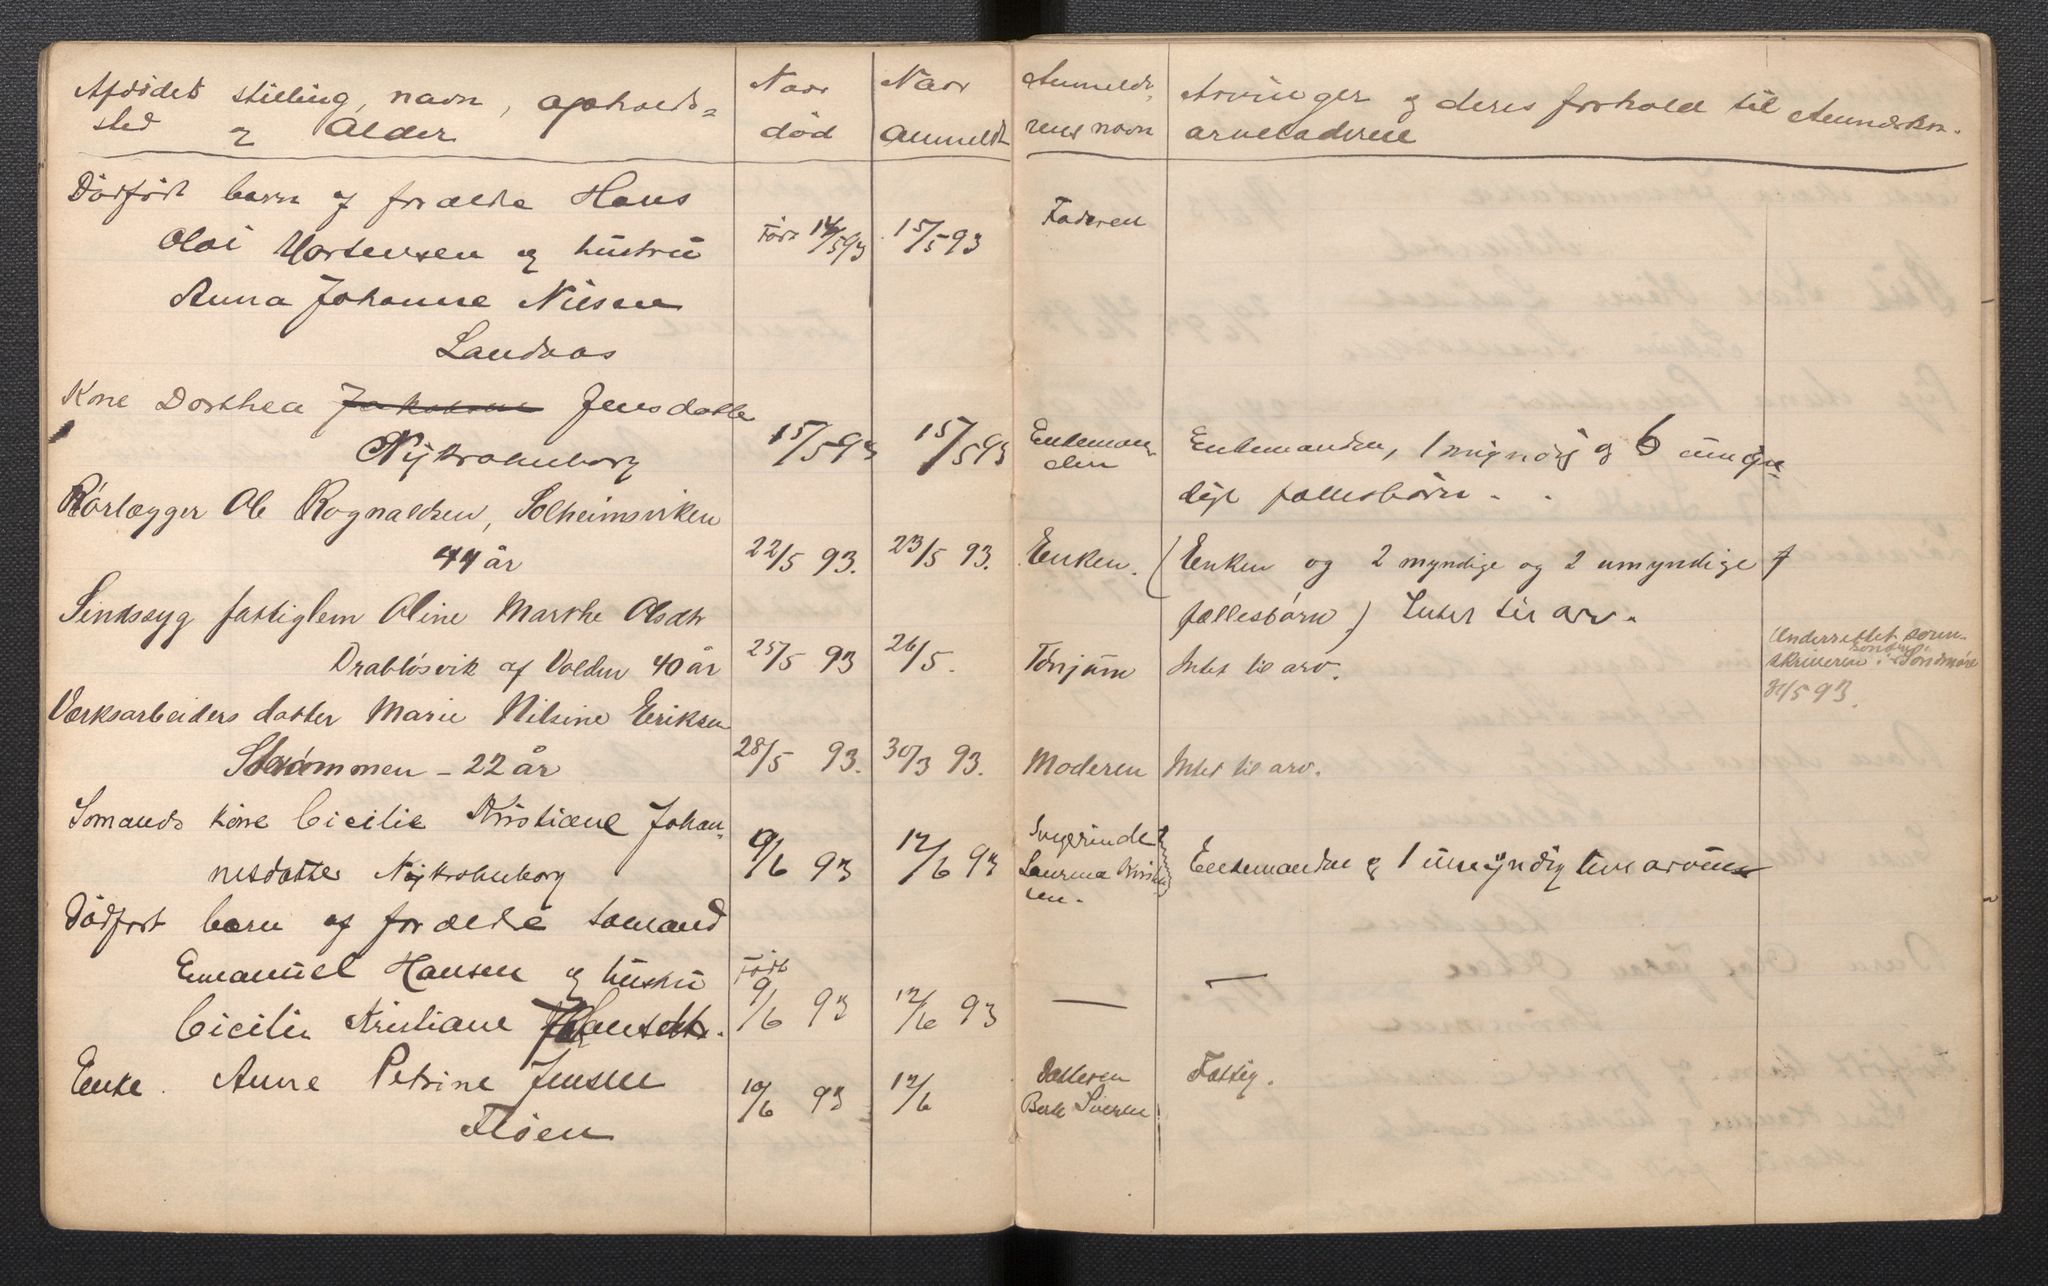 Afdødes stilling, navn, opholds-
sted og Alder
Naar
død
Naar
anmeldt
Anmelde-
rens navn
Arvinger og deres forhold til
arveladeren
Anmærkn.
Dødfødt barn af forældre Hans
Olai Mortensen og hustru
Anna Johanne Nilsen
Landaas
Født 14/5 93
15/5 93
Faderen
Kone Dorthea Jensdatter
Nykrohnborg
15/5 93
15/5 93
Enkeman-
den
Enkemanden, 1 myndig og 6 umyn-
dige fællesbørn.
Rørlægger Ole Rognaldsen, Solheimsviken
44 år
22/5 93.
23/5 93.
Enken.
(Enken og 2 myndige og 2 umyndige
fællesbørn) Intet til arv.
Sindssyg fattiglem Oline Marthe Olsdtr
Drabløsvik af Volden 40 år
25/5 93
26/5.
Tønjum
Intet til arv.
Underrettet soren-
skriveren i Søndmøre
31/5 93.
Værksarbeiders datter Marie Nilsine Eriksen
Strømmen - 22 år
28/5 93.
30/3 93.
Moderen
Intet til arv.
Sømands kone Cicilie Kristiane Johan-
nesdatter Nykrohnborg
9/6 93
12/6 93
Svigerinde
Laurina
Enkemanden og 1 umyndig
Dødfødt barn af forældre sømand
Emanuel Hansen og hustru
Cicilie Kristiane
Født
9/6 93
12/6 93
—
—
Enke Anne Petrine Jensen
Fløen
10/6 93
12/6
Datteren
Fattig.